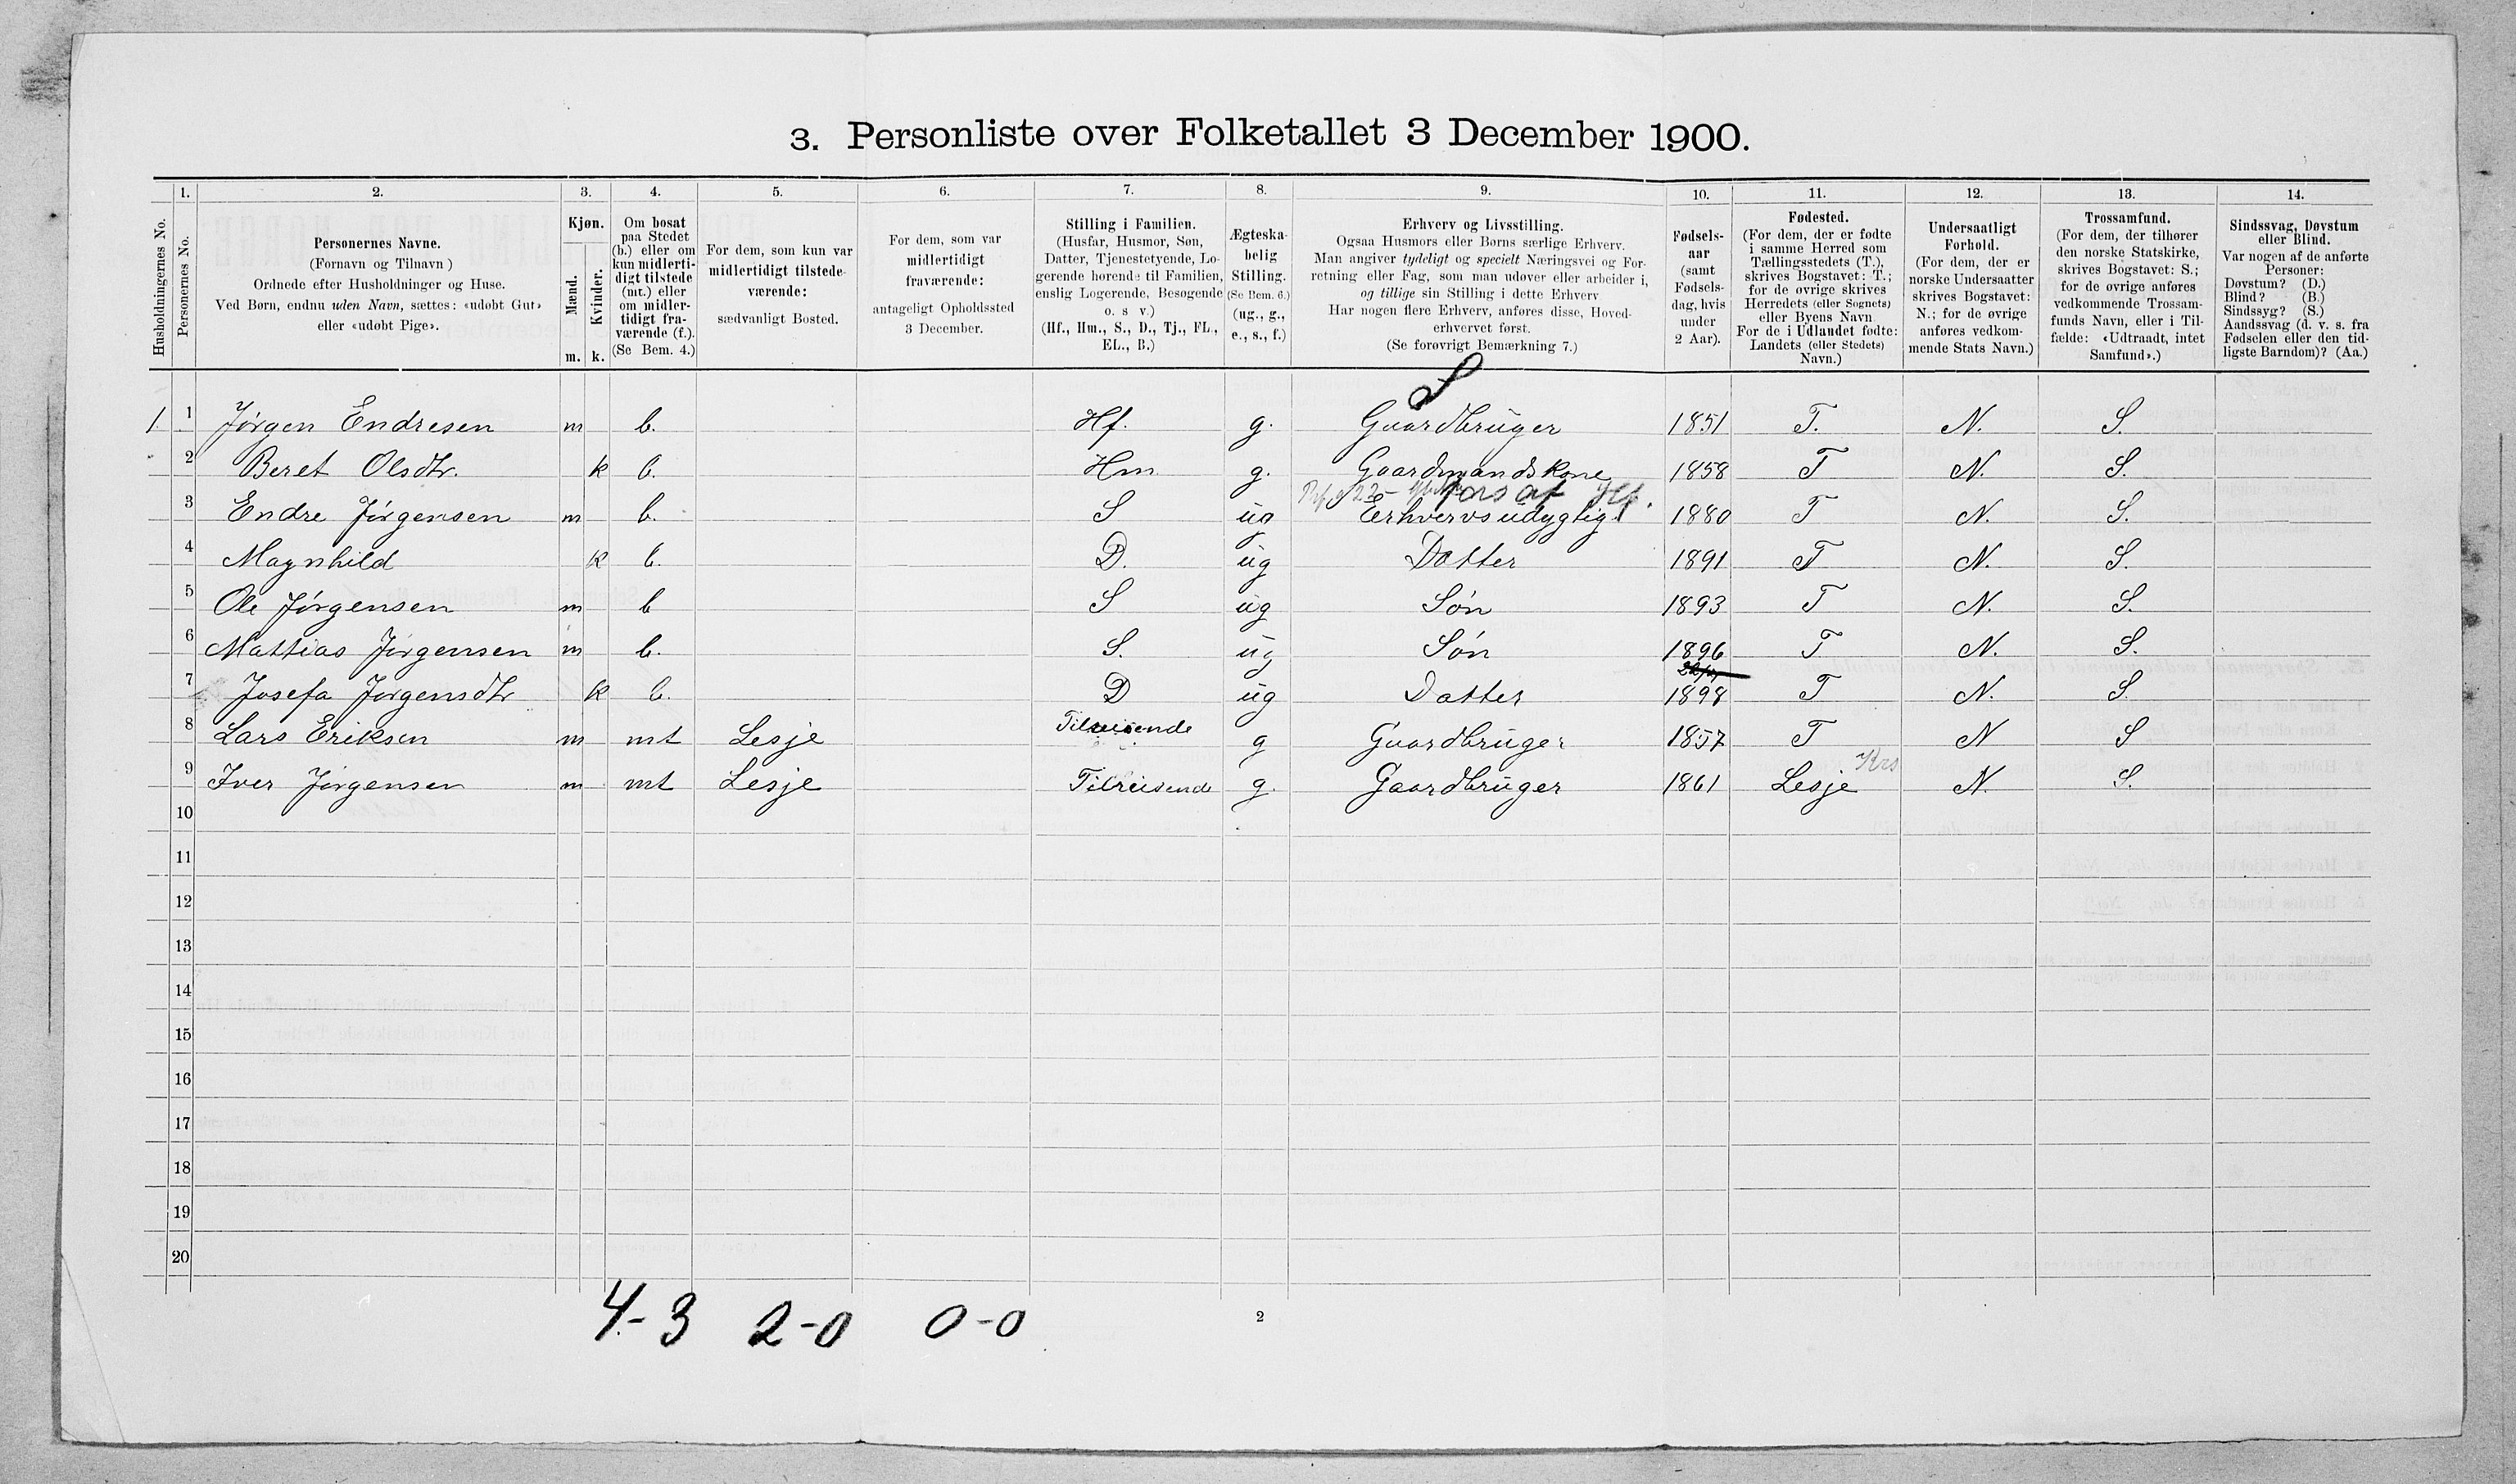 3. Personliste over Folketallet 3 December 1900.
1. 2. 3. 4. 5. 6. 7. 8. 9. 10. 11. 12. 13. 14.
Husholdningernes No.
Personernes No.
Personernes Navne.
(Fornavn og Tilnavn)
Ordnede efter Husholdninger og Huse.
Ved Børn, endnu uden Navn, sættes: «udøbt Gut»
eller «udøbt Pige».
Kjøn.
Mænd.
Kvinder.
m. k.
Om bosat
paa Stedet
(b.) eller om
kun midlerti-
digt tilstede
(mt.) eller
om midler-
tidigt fra-
værende (f.).
(Se Bem. 4.)
For dem, som kun var
midlertidigt tilstede-
værende:
sædvanligt Bosted.
For dem, som var
midlertidigt
fraværende:
antageligt Opholdssted
3 December.
Stilling i Familien.
(Husfar, Husmor, Søn,
Datter, Tjenestetyende, Lo-
gerende hørende til Familien,
enslig Logerende, Besøgende
o. s v.)
(Hf., Hm., S., D., Tj., FL.,
EL., B.)
Ægteska-
belig
Stilling.
(Se Bem. 6.)
(ug., g.,
e., s., f.)
Erhverv og Livsstilling.
Ogsaa Husmors eller Børns særlige Erhverv.
Man angiver tydeligt og specielt Næringsvei og For-
retning eller Fag, som man udøver eller arbeider i,
og tillige sin Stilling i dette Erhverv
Har nogen flere Erhverv, anføres disse, Hoved-
erhvervet først.
(Se forøvrigt Bemærkning 7.)
Fødsels-
aar
(samt
Fødsels-
dag, hvis
under
2 Aar).
Fødested.
(For dem, der er fødte
i samme Herred som
Tællingsstedets (T.),
skrives Bogstavet: T.;
for de øvrige skrives
Herredets (eller Sognets)
eller Byens Navn
For de i Udlandet fødte:
Landets (eller Stedets)
Navn.)
Undersaatligt
Forhold.
(For dem, der er
norske Undersaatter
skrives Bogstavet:
N.; for de øvrige
anføres vedkom-
mende Stats Navn.)
Trossamfund.
(For dem, der tilhører
den norske Statskirke,
skrives Bogstavet: S.;
for de øvrige anføres
vedkommende Trossam-
funds Navn, eller i Til-
fælde: «Udtraadt, intet
Samfund».)
Sindssvag, Døvstum
eller Blind.
Var nogen af de anførte
Personer:
Døvstum? (D.)
Blind? (B.)
Sindssyg? (S.)
Aandssvag (d. v. s. fra
Fødselen eller den tid-
ligste Barndom)? (Aa.)
S
1 1 Jørgen Endresen m b. Hf. g. Gaardbruger 1851 T. N. S.
2 Beret Olsdtr. k b. Hm g. Gaardmandskone 1858 T N. S.
fors af Hf.
3 Endre Jørgensen m b. S ug Erhvervsudygtig 1880 T N. S.
4 Magnhild k b. D. ug Datter 1891 T N. S.
5 Ole Jørgensen m b S ug Søn 1893 T N. S.
6 Mattias Jørgensen m b. S. ug Søn 1896 T N. S.
7 Josefa Jørgensdtr k b. D ug Datter 1898 T N. S.
8 Lars Eriksen m mt Lesje Tilreisende g Gaardbruger 1857 T N S
Krs
9 Iver Jørgensen m mt Lesje Tilreisend g. Gaardbruger 1861 Lesje N. S.
10
11
12
13
14
15
16
17
18
19
20
4-3 2-0 0-0
2